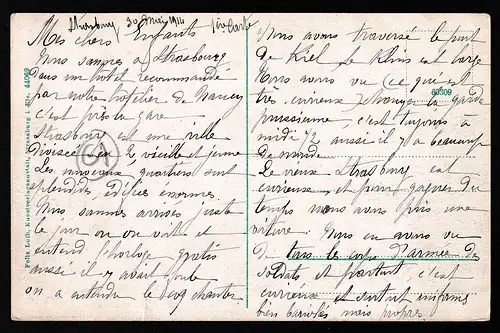 Strasbourg 30 Mai 1914 1ère Carte
Mes chers Enfants
Nous sommes à Strasbourg
Dans un hotel recommandé
par notre hotelier de Nancy
c'est près la gare
Strasbourg est une ville
Divisée en 2, vieille et jeune
Les nouveaux quartiers sont
splendides, édifices énormes.
Nous sommes arrivés juste
le jour ou on voit et
entend l'horloge gratis
aussi il y avait foule
on a entendu le coq chanter
Nous avons traversé le pont
de Kiel le Rhin est large
Nous avons vu (ce qui est
très curieux changer la garde
prussienne, c'est toujours à
midi 1/2 aussi il y a beaucoup
de monde
Le vieux Strasbourg est
curieux, et pour gagner du
temps nous avons pris une
voiture. Nous en avons vu
De tous les corps d'armée des
soldats et partout c'est
curieux et surtout uniformes
bien mais propres.
Felix Luib, Kunstverlagsanstalt, Strassburg i. Els. 44069
60309